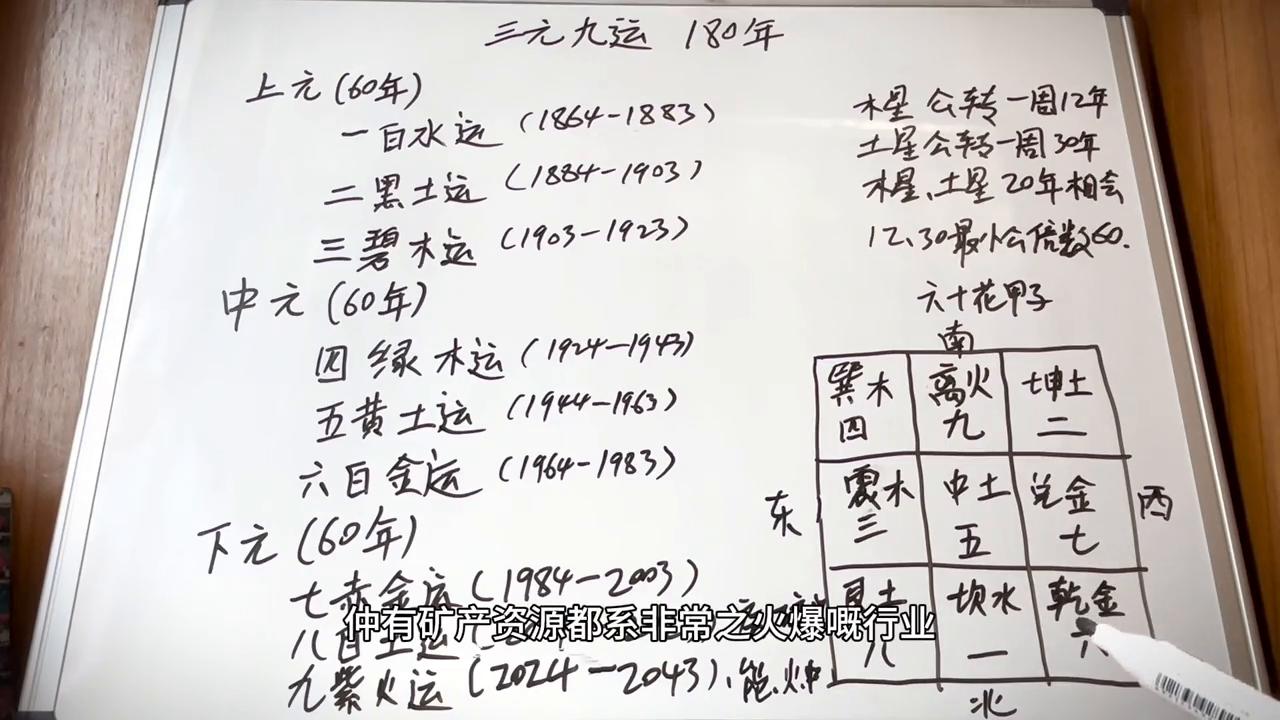 三元九运 180年
上元(60年)
一白水运 (1864-1883)
二黑土运 (1884-1903)
三碧木运 (1903-1923)
中元(60年)
四绿木运 (1924-1943)
五黄土运 (1944-1963)
六白金运 (1964-1983)
下元(60年)
七赤金运 (1984-2003)
八白土运
九紫火运 (2024-2043)、能
木星公转一周12年
土星公转一周30年
木星、土星20年相会
12、30最小公倍数60.
六十花甲子
南
巽木 离火 坤土
四 九 二
东 震木 中土 兑金 西
三 五 七
艮土 坎水 乾金
八 一 六
北
仲有矿产资源都系非常之火爆嘅行业